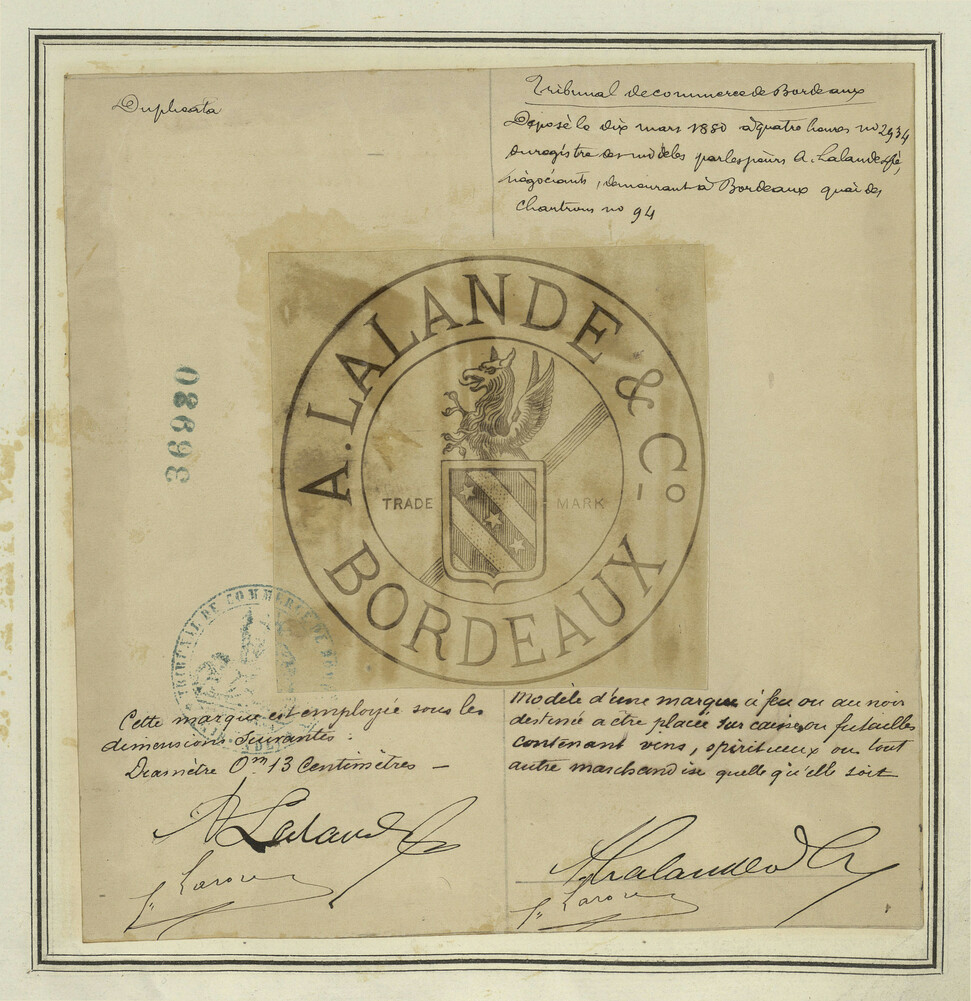 Duplicata
Tribunal de commerce de Bordeaux
Déposé le dix mars 1880 à quatre heures no 2934
du registre des modèles par les sieurs A. Lalande & Cie,
négociants, demeurant à Bordeaux quai des
Chartrons no 94
36980
A. LALANDE & Co
TRADE MARK
BORDEAUX
TRIBUNAL DE COMMERCE DE
Cette marque est employée sous les
dimensions suivantes :
Diamètre 0m 13 Centimètres —
Modèle d'une marque à feu ou au noir
destinée a être placée sur caisse, ou futailles
contenant vins, spiritueux ou tout
autre marchandise quelle qu'elle soit
A Lalande
A Lalande & Cie